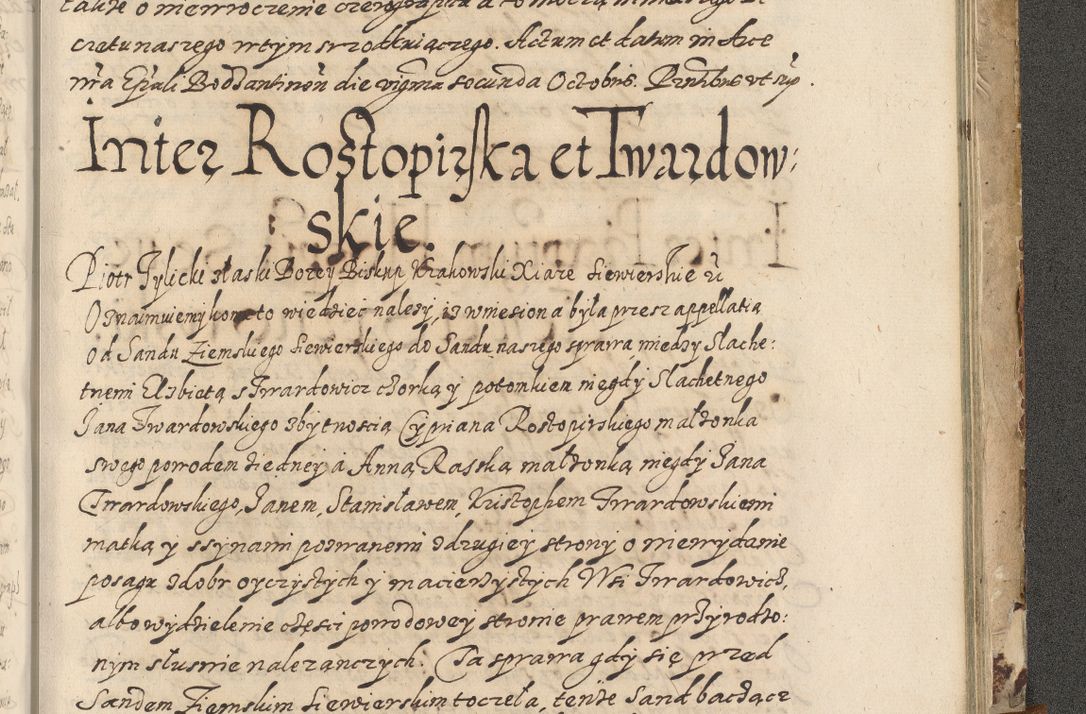 czetu naszego w tym srzodkuiączego. Actum et datum in Arce
nrã Epali Bodzantinen̄ die vigma secunda Octobris. Pr̃ntibus vt sup.
Inter Rostopirska et Twardow:
skie.
Piotr Tylicki złaski Bozey Biskup Krakowski Xiąze Siewierskie &
Oznaimuiemy komu to wiedziec nalezy, iz wniesiona była przez appellatią
Od Sandu Ziemskiego Siewierskiego do Sandu naszego sprawa między Slache:
tnemi Elzbietą s Twardowicz czorką y potomkien niegdy Slachetnego
Jana Twardowskiego zbytnoscią Cypriana Rostopirskiego małzonka
swego powodem ziedney a Anną Rasską małzonką niegdy Jana
Twardowskiego, Janem, Stanisławem, Kristophem Twardowskiemi
matką y ssynami pozwanemi zdrugiey strony o niewydanie
posagu zdobr oyczystych y macierzystych Wsi Twardowicz,
albo wydzielenie częsci powodowey stronie prawem przyrodzo:
nym slusnie nalezanczych. Ta sprawa gdy się przed
Sandem Ziemskim Siewierskim toczeła, tenze Sand baczącz